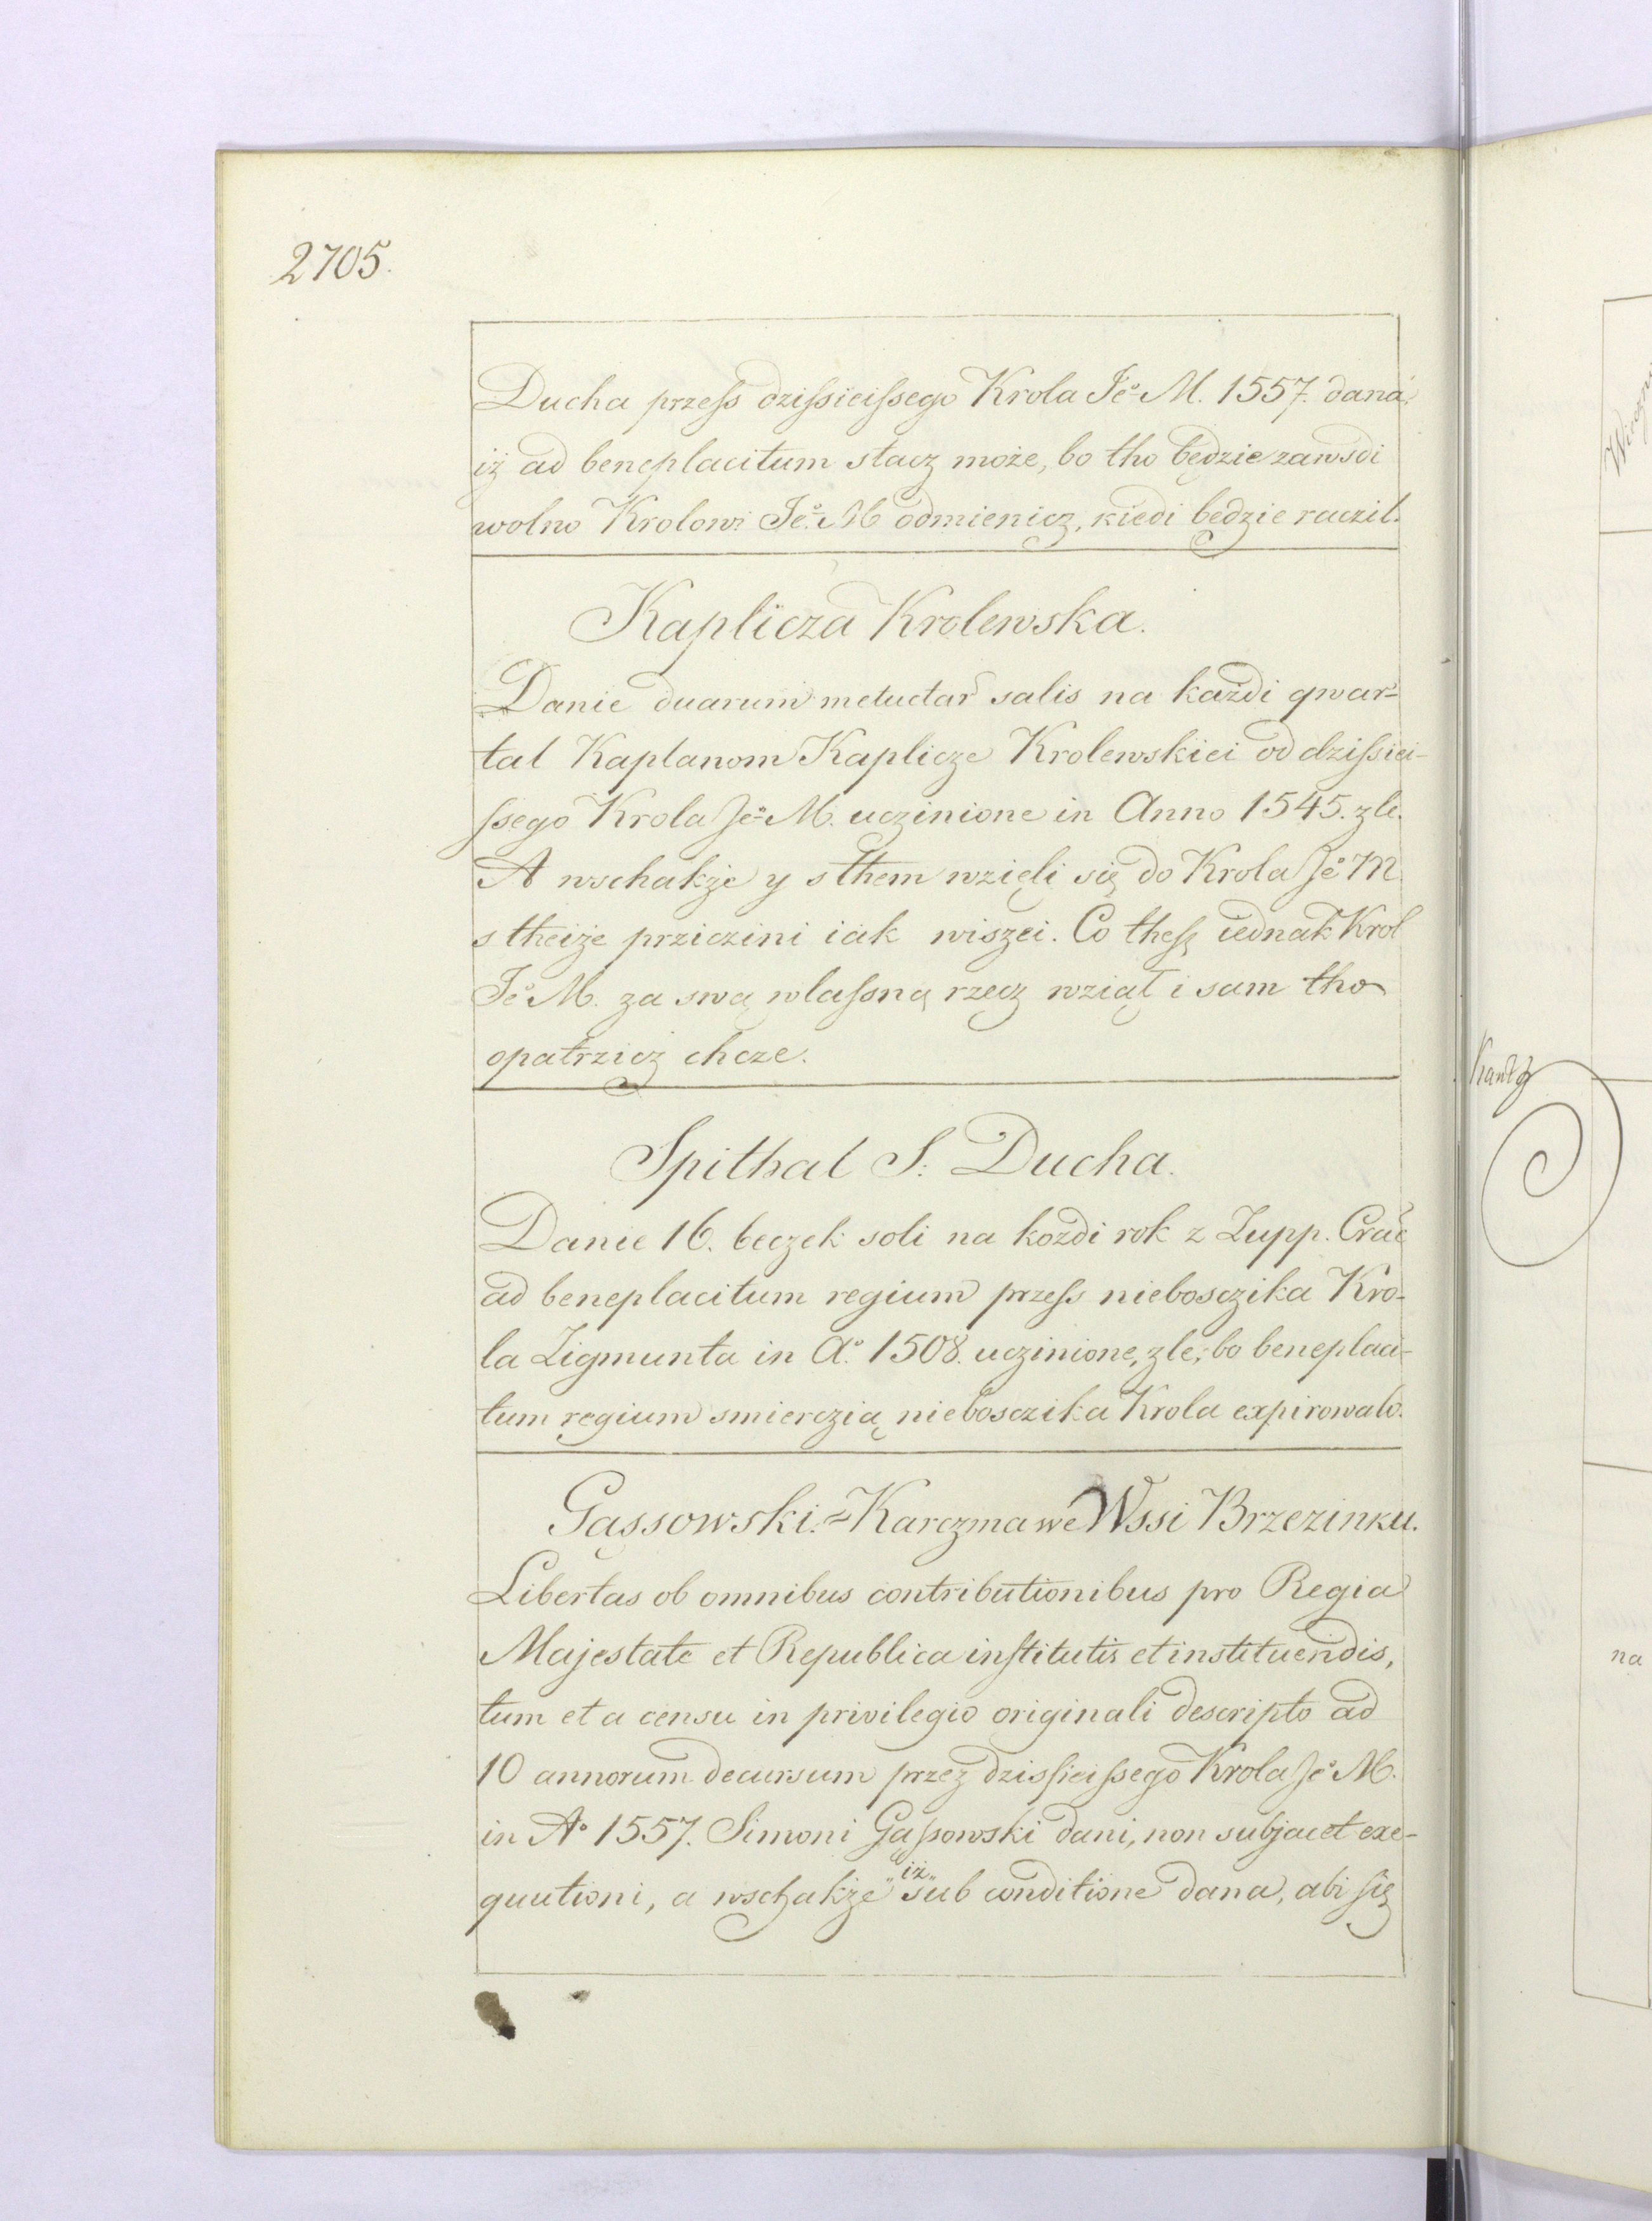 2705.
Ducha przeſs dziſsieiſsego Krola Jeº M. 1557. dana,
iż ad beneplacitum stacz może, bo tho będzie zawsdi
wolno Krolowi Jeº M odmienicz, kiedi będzie raczil.
Kaplicza Krolewska.
Danie duarum metuctar̃ salis na każdi qwar-
tal Kaplanom Kaplicze Krolewskiei od dziſsiei-
ſsego Krola Jeº M. uczinione in Anno 1545. zle.
A wschakże y s them wzięli się do Krola Jeº M
s theiże przicżini iak wiszei. Co theſz iednak Krol
Jeº M. za swą wlaſsną rzecz wziął i sam tho
opatrzicz chcze.
Spithal S. Ducha.
Danie 16. beczek soli na kozdi rok z Zupp. Crac̃
ad beneplacitum regium przeſs niebosczika Kro-
la Zigmunta in Aº 1508. uczinione, zle, bo beneplaci-
tum regium smierczią niebosczika Krola expirowalo.
Gąssowski. = Karczma we Wssi Brzezinku.
Libertas ob omnibus contributionibus pro Regia
Majestate et Republica inſtitutis et instituendis,
tum et a censu in privilegio originali descripto ad
10 annorum decursum przez dzisſieiſsego Krola Jeº M.
in Aº 1557. Simoni Gąſsowski dani, non subjacet exe-
quutioni, a wschakże „iż„ sub conditione dana, abi ſię
na